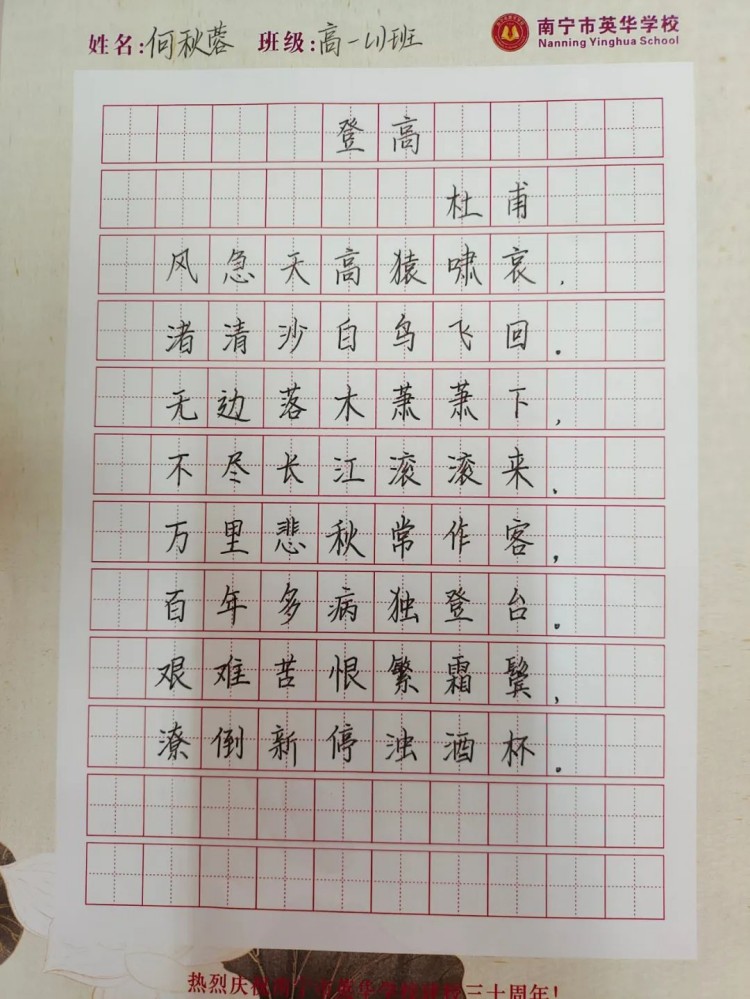 姓名:何秋蓉 班级:高一(1)班
南宁市英华学校
Nanning Yinghua School
登高
杜甫
风急天高猿啸哀,
渚清沙白鸟飞回.
无边落木萧萧下,
不尽长江滚滚来.
万里悲秋常作客,
百年多病独登台.
艰难苦恨繁霜鬓,
潦倒新停浊酒杯.
热烈庆祝南宁市英华学校建校三十周年!